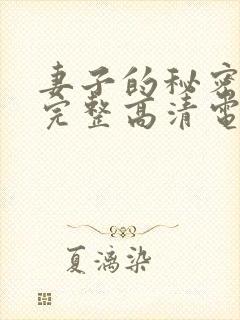 妻子的秘密
完整高清電
夏漓染